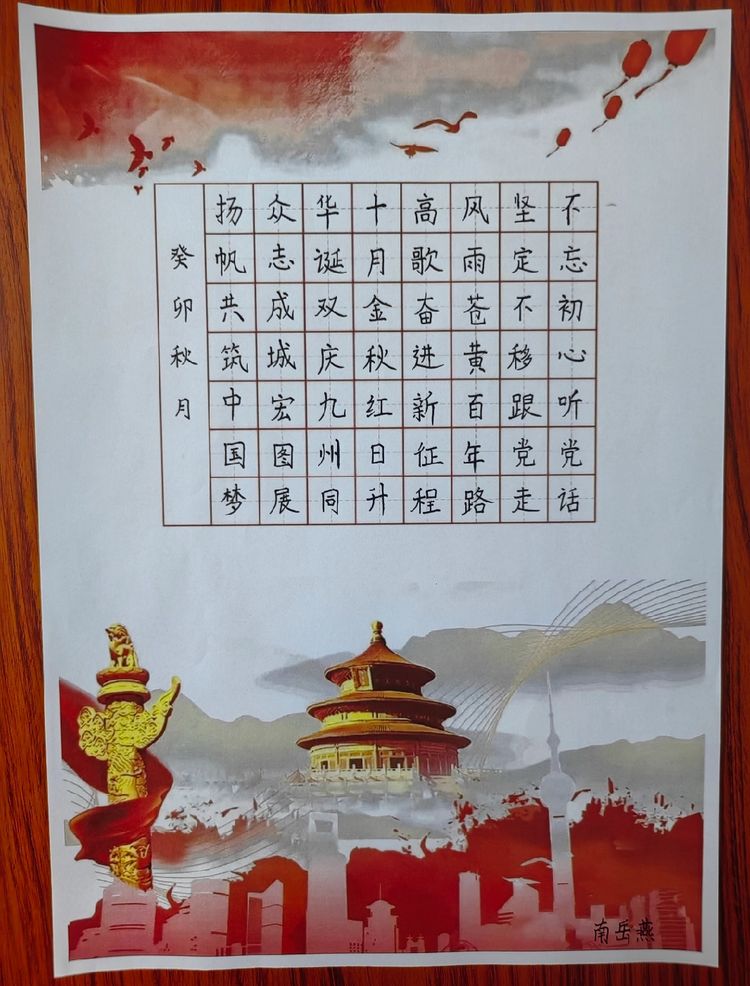 不忘初心听党话
坚定不移跟党走
风雨苍黄百年路
高歌奋进新征程
十月金秋红日升
华诞双庆九州同
众志成城宏图展
扬帆共筑中国梦
癸卯秋月
南岳燕